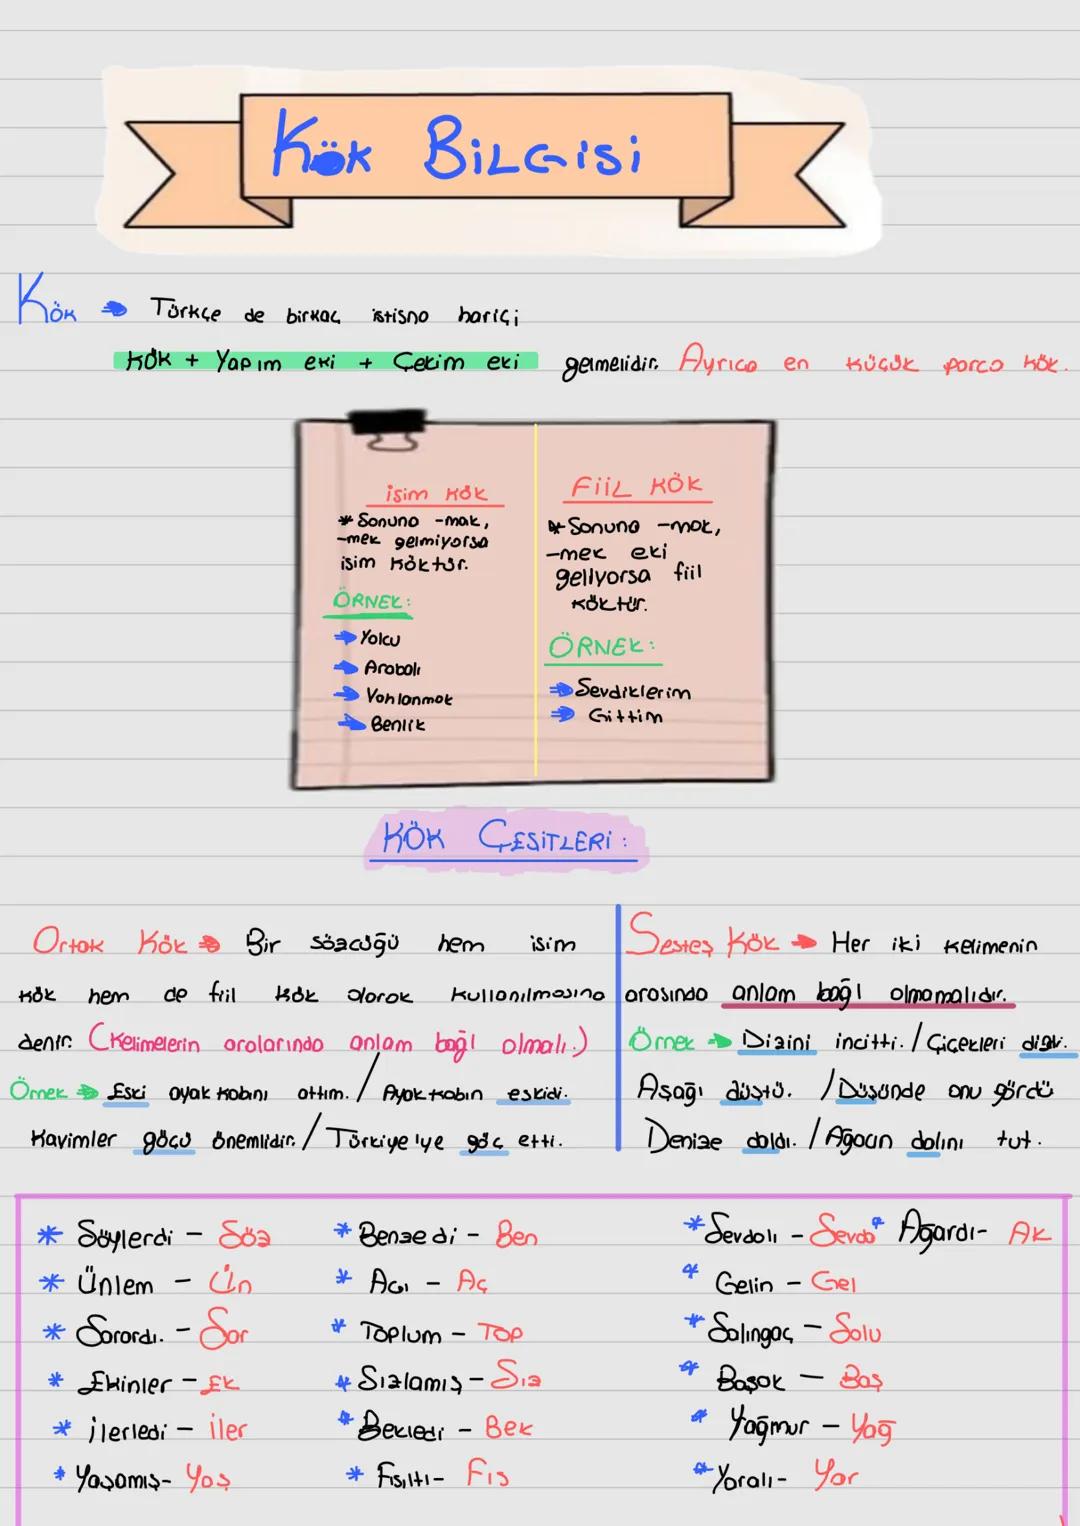 Kök BiLGisi
Kök → Türkçe de birkaç istisna hariçi
Kök + Yapım eki + Çekim eki gelmelidir. Ayrıca en küçük parça kök.
isim kök
* Sonuna -mak,
-mek gelmiyorsa
isim köktür.
ÖRNEK:
→ Yolcu
→ Arabalı
→ Vahlanmak
→ Benlik
FiiL KÖK
* Sonuna -mak,
-mek eki
geliyorsa fiil
köktür.
ÖRNEK:
→ Sevdiklerim
→ Gittim
KÖK ÇEŞiTLERi:
Ortak Kök → Bir sözcüğü hem isim
kök hem de fiil kök olarak kullanılmasına
denir. (Kelimelerin aralarında anlam bağı olmalı.)
Örnek → Eski ayakkabını attım. / Ayakkabın eskidi.
Kavimler göçü önemlidir. / Türkiye'ye göç etti.
Sesteş Kök → Her iki kelimenin
arasında anlam bağı olmamalıdır.
Örnek → Dizini incitti. / Çiçekleri dizdi.
Aşağı düştü. / Düşünde onu gördü
Denize daldı. / Ağacın dalını tut.
* Söylerdi - Söz
* Ünlem - Ün
* Sorardı. - Sor
* Ekinler - Ek
* ilerledi - iler
* Yaşamış - Yaş
* Benzedi - Ben
* Acı - Aç
* Toplum - Top
* Sızlamış - Sız
* Bekledi - Bek
* Fısıltı - Fıs
* Sevdalı - Sevda
* Ağardı - Ak
* Gelin - Gel
* Salıngaç - Solu
* Başak - Baş
* Yağmur - Yağ
* Yaralı - Yar